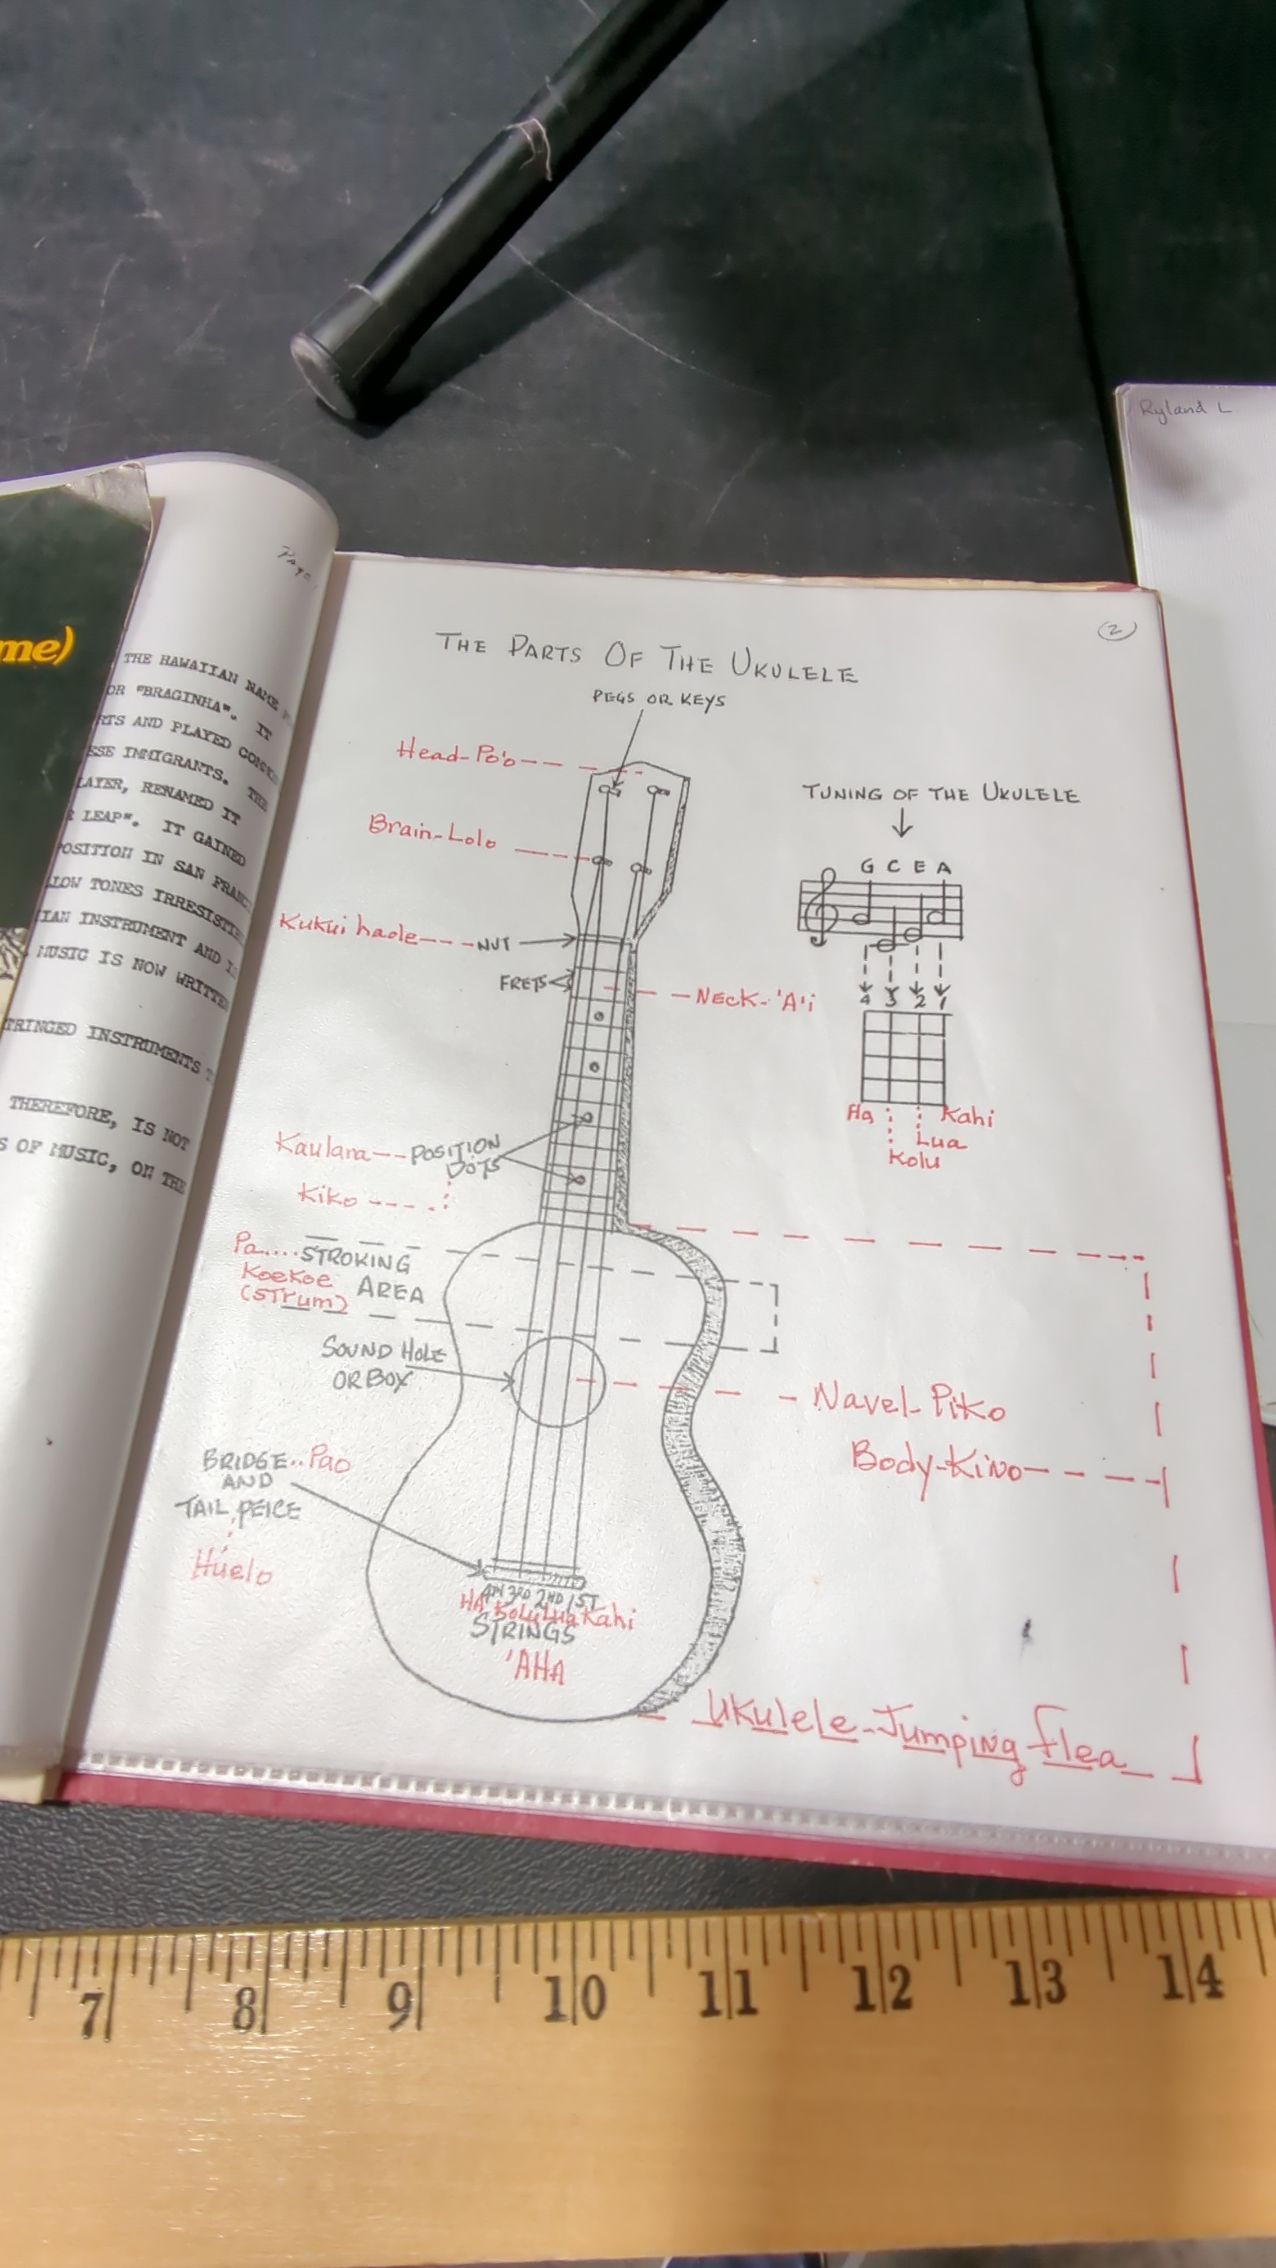 Ryland L
me)
Page
THE HAWAIIAN NAME
OR "BRAGINHA". IT
RTS AND PLAYED
ESE IMMIGRANTS. THE
LAYER, RENAMED IT
LEAP". IT GAINED
OSITION IN SAN
LOW TONES
IAN INSTRUMENT AND
MUSIC IS NOW WRITTEN
TRINGED INSTRUMENTS
THEREFORE, IS NOT
S OF MUSIC, ON THE
2
THE PARTS OF THE UKULELE
PEGS OR KEYS
Head-Po'o
Brain-Lolo
Kukui haole---NUT
FRETS
NECK-'A'i
Kaulana--POSITION
DOTS
Kiko
Pa....STROKING
Koekoe AREA
(STrum)
SOUND HOLE
OR BOX
Navel-Piko
Body-Kino
BRIDGE..Pao
AND
TAIL PEICE
Huelo
4TH 3RD 2ND 1ST
HA Kolu Lua Kahi
STRINGS
'AHA
UKulele-Jumping flea
TUNING OF THE UKULELE
G C E A
4 3 2 1
Ha Kahi
Lua
Kolu
7 8 9 10 11 12 13 14